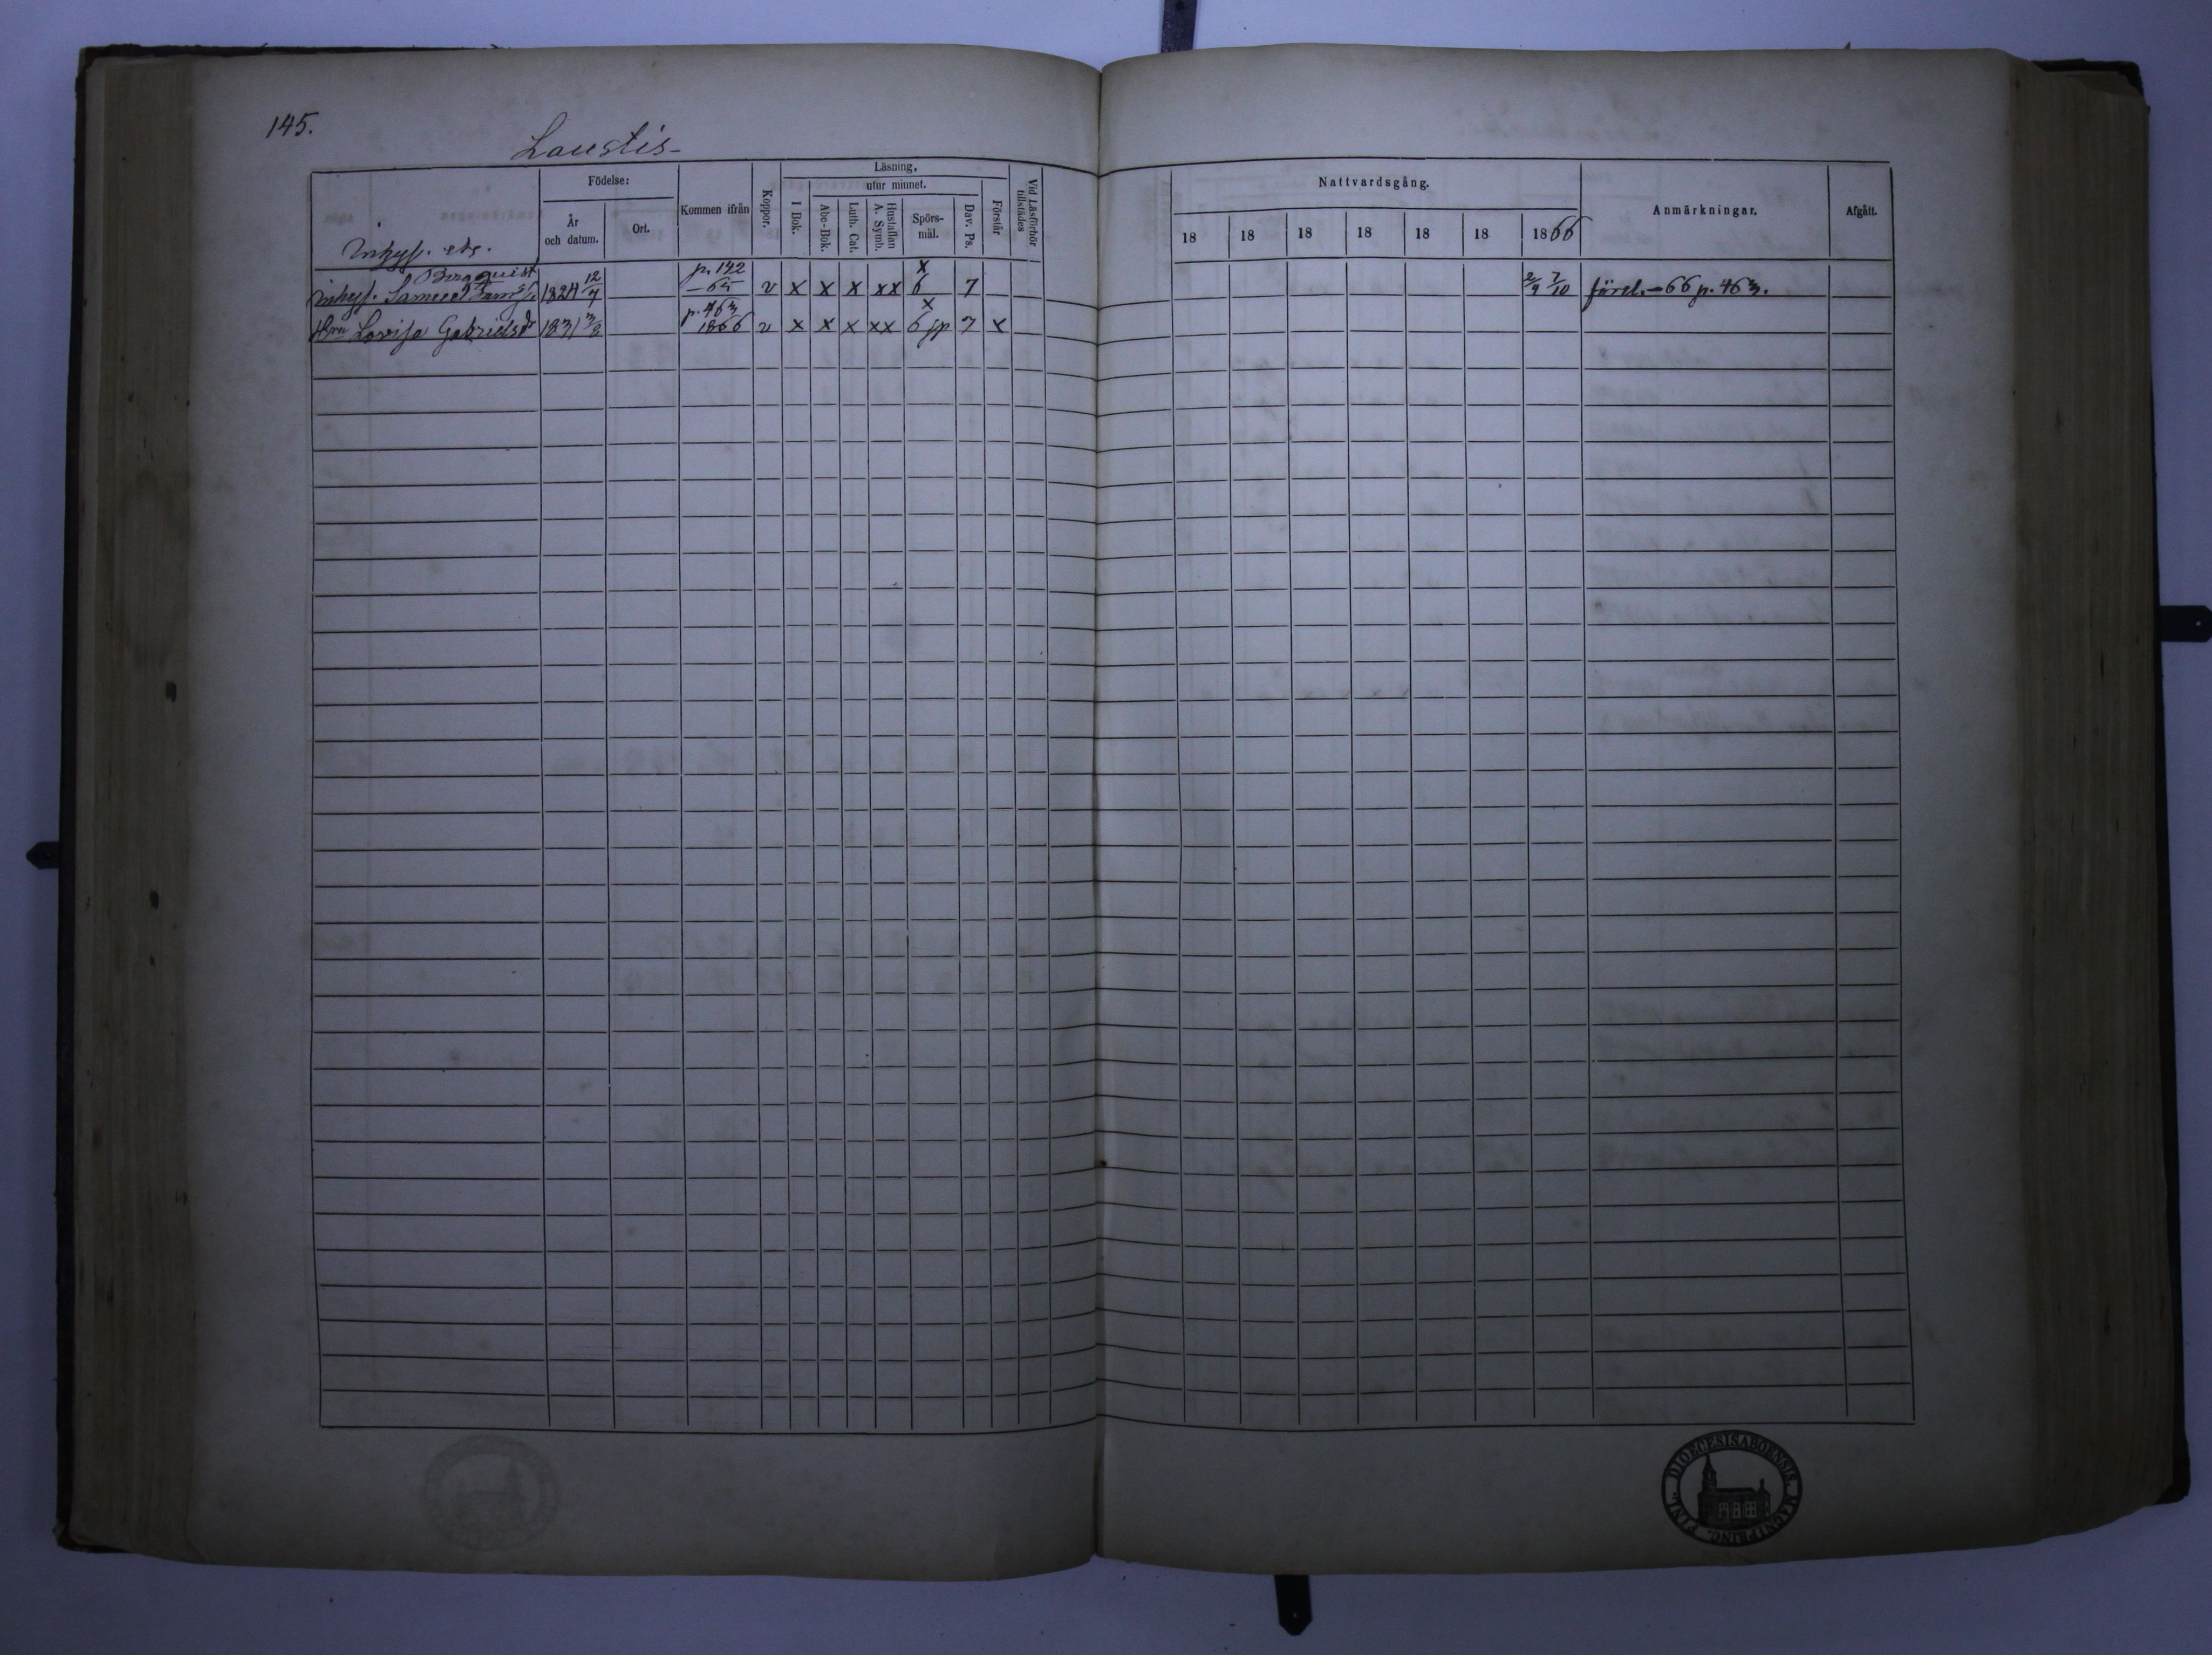 145.
Laustis
Födelse:
År
och datum.
Ort.
Kommen ifrån
Koppor.
Läsning,
utur minnet.
I Bok.
Abc-Bok.
Luth. Cat.
Hustaflan
A. Symb.
Spörs-
mål.
Dav. Ps.
Förstår
Vid Läsförhör
tillstädes
Nattvardsgång.
18 18 18 18 18 18 1866
Anmärkningar.
Afgått.
Inhys. etc.
Bergquist
Inhys. Samuel 1824 12/7 p. 142 -65 v x x x xx x 6 7 2/9 7/10 förel. -66 p. 463.
Hru Lovisa Gabrielsdr 1831 3/3 p. 463 1866 v x x x xx x 6 gp 7 x
DIOECESIS ABOENSIS MAGNI PRINC. FINL.